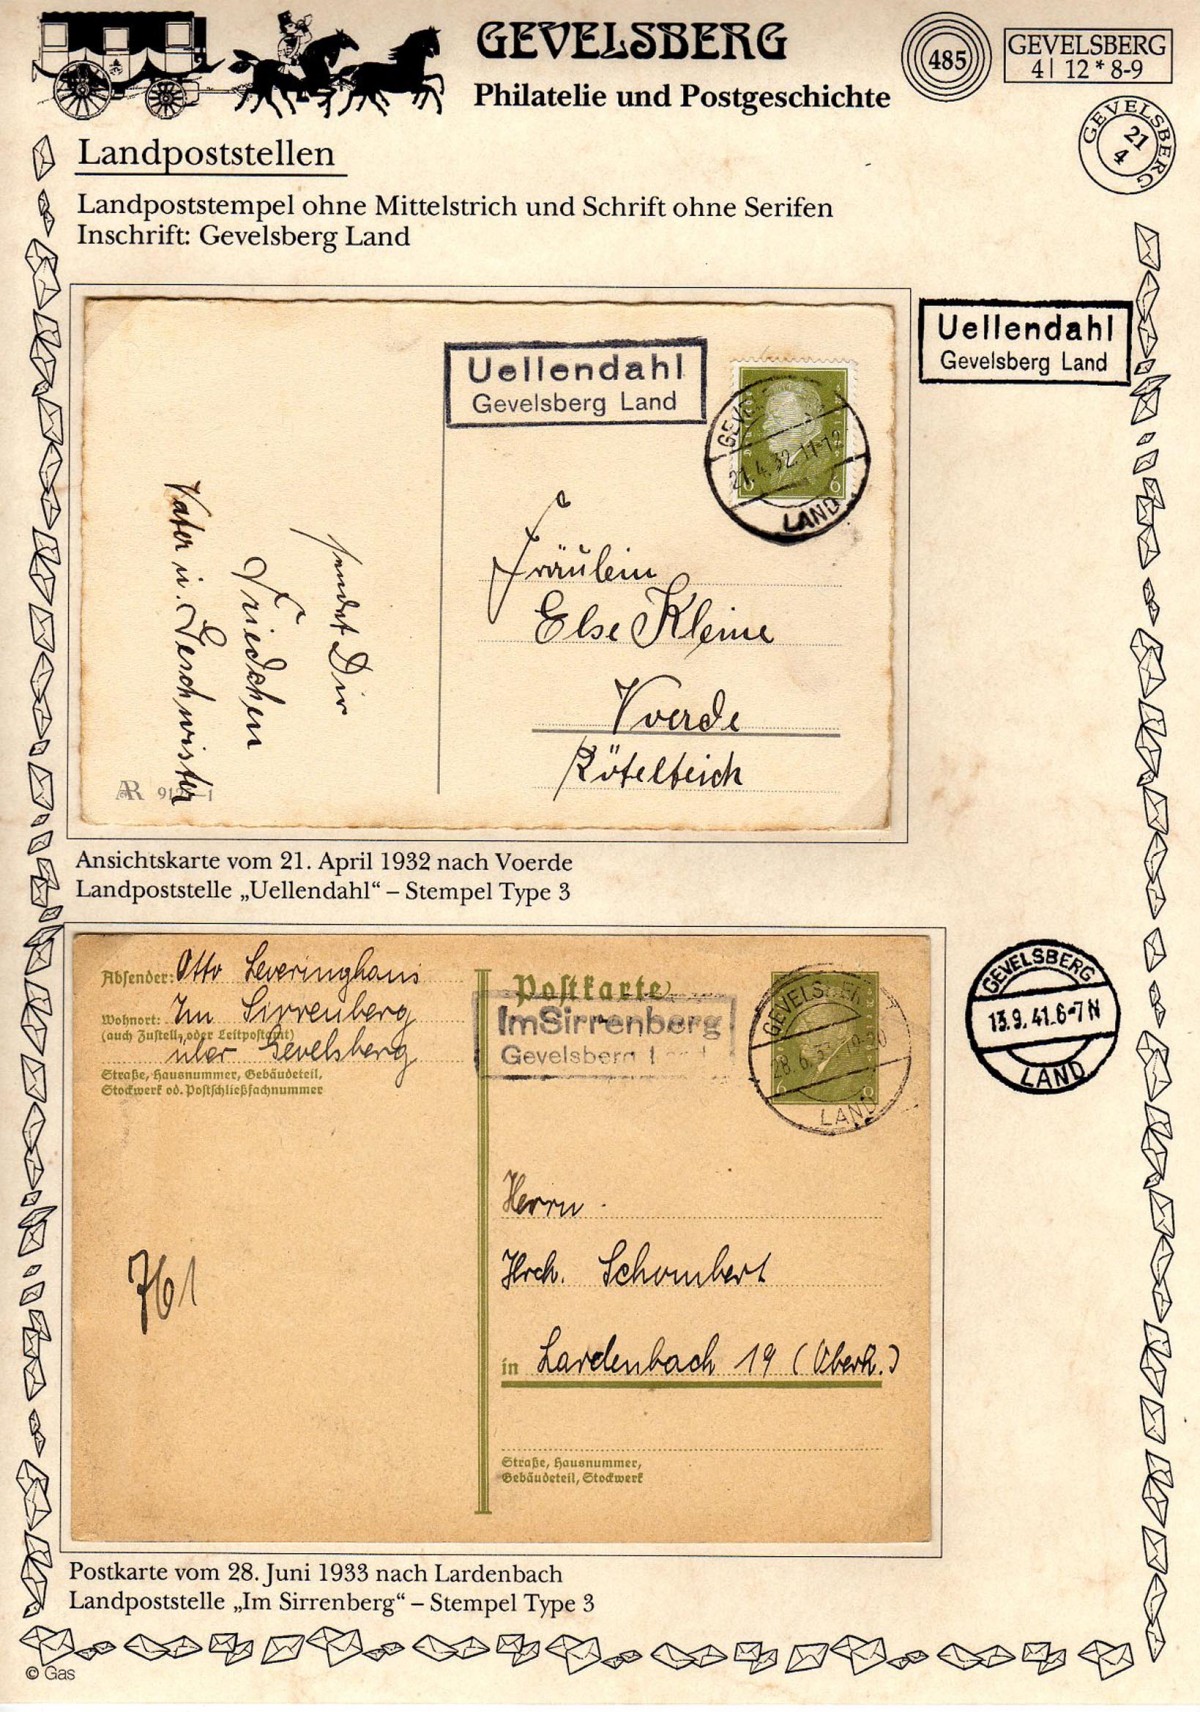 GEVELSBERG
Philatelie und Postgeschichte
485
GEVELSBERG
4| 12 * 8-9
GEVELSBERG
21
4
Landpoststellen
Landpoststempel ohne Mittelstrich und Schrift ohne Serifen
Inschrift: Gevelsberg Land
Uellendahl
Gevelsberg Land
Uellendahl
Gevelsberg Land
6 6
21.4.32.11-12
LAND
sendet Dir
Friedchen
Vater u. Geschwister
Fräulein
Else Kleine
Voerde
Rötelteich
AR
Ansichtskarte vom 21. April 1932 nach Voerde
Landpoststelle „Uellendahl“ – Stempel Type 3
Absender: Otto Leveringhaus
Wohnort: Im Sirrenberg
(auch Zustell- oder Leitpostamt)
über Gevelsberg
Straße, Hausnummer, Gebäudeteil,
Stockwerk od. Postschließfachnummer
Postkarte
Im Sirrenberg
Gevelsberg Land
GEVELSBERG
LAND
6
761
Herrn
Hrch. Schombert
in Lardenbach 19 (Oberh.)
Straße, Hausnummer,
Gebäudeteil, Stockwerk
GEVELSBERG
13.9.41.6-7N
LAND
Postkarte vom 28. Juni 1933 nach Lardenbach
Landpoststelle „Im Sirrenberg“ – Stempel Type 3
© Gas